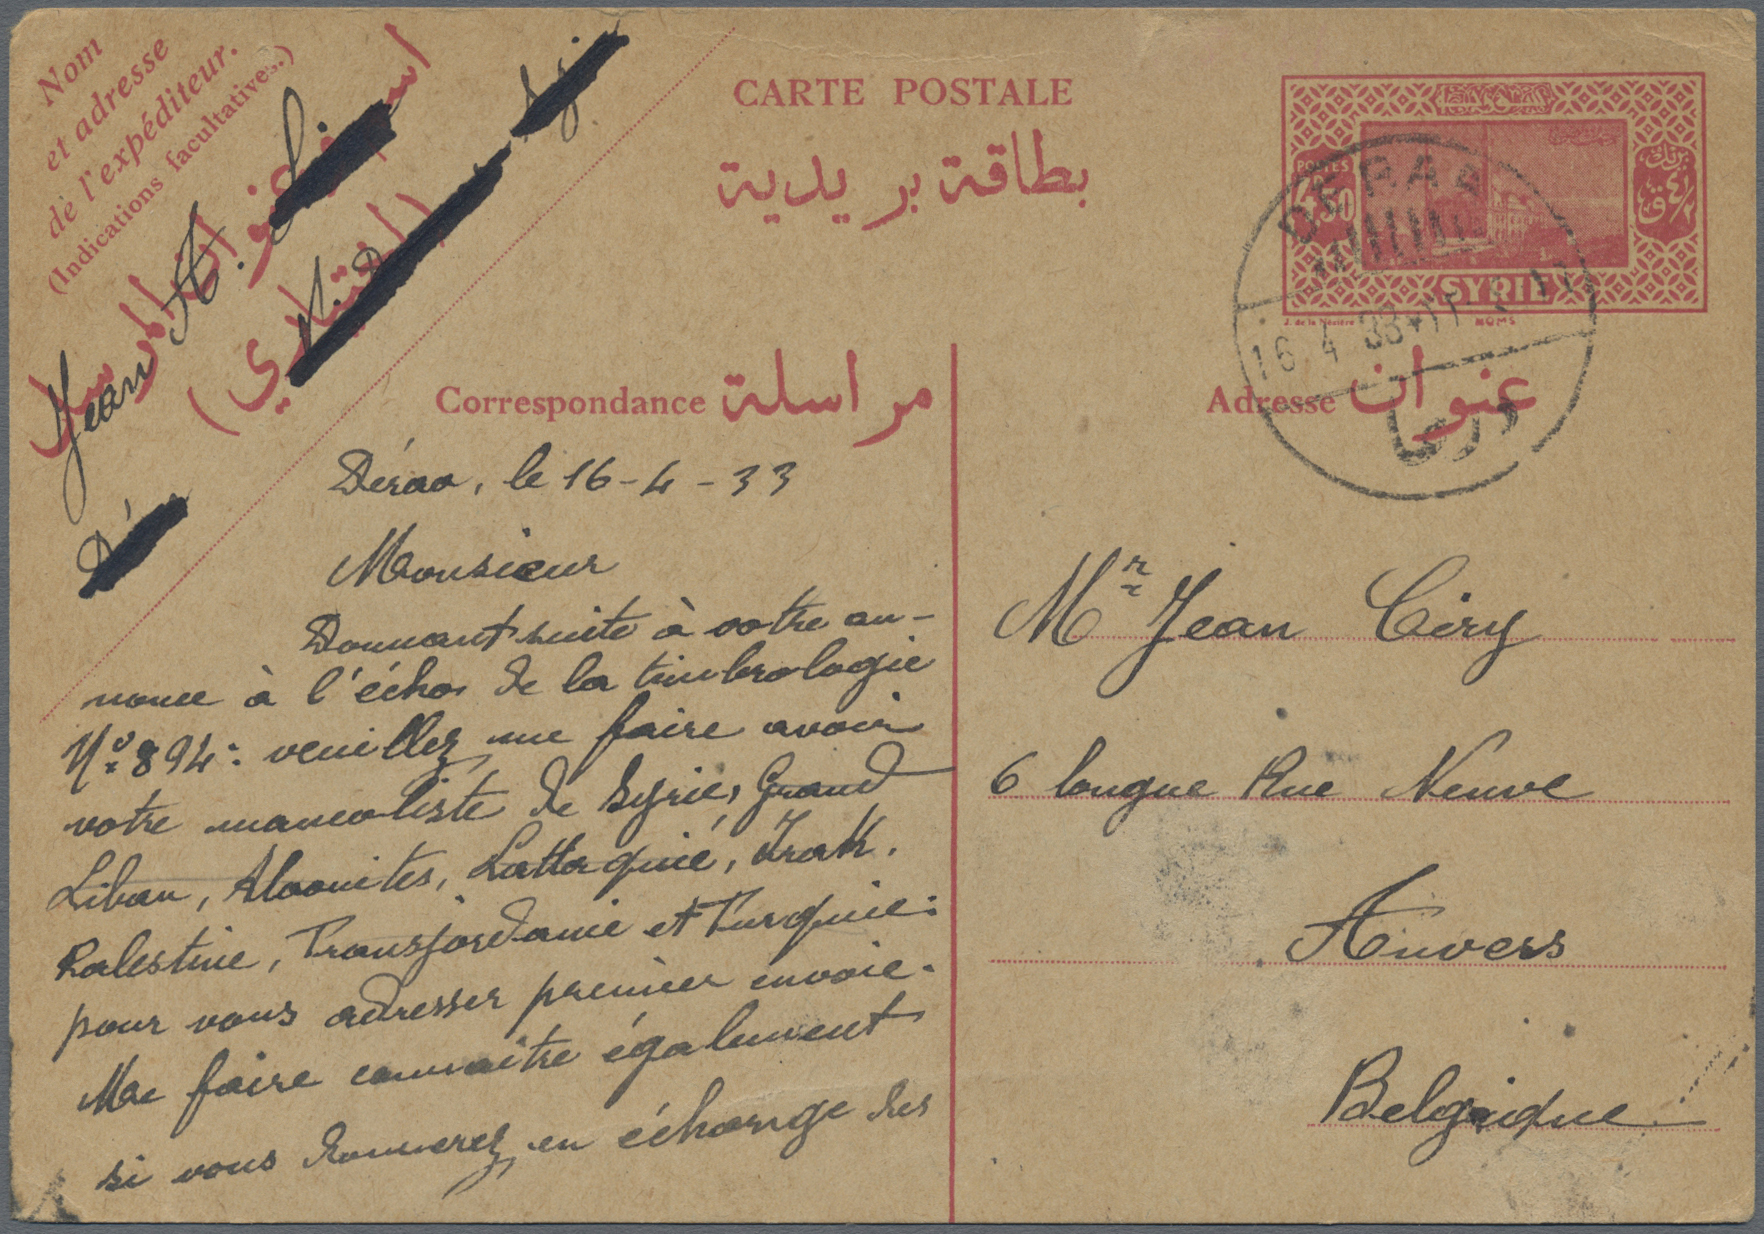 Nom
et adresse
de l'expéditeur.
(Indications facultatives.)
اسم وعنوان المرسل
(اختياري)
Jean A.
CARTE POSTALE
بطاقة بريدية
POSTES
4,50
SYRIE
DERAA
16 4 33
درعا
Correspondance مراسلة
Adresse عنوان
Déraa, le 16-4-33
Monsieur
Donnant suite à votre an-
nonce à l'écho de la timbrologie
No 894: veuillez me faire avoir
votre mancoliste de Syrie, Grand
Liban, Alaouites, Lattaquié, Irak,
Palestine, Transjordanie et Turquie:
pour vous adresser premier envoie.
Me faire connaitre également
si vous donnerez en échange des
Mr Jean Ciry
6 longue Rue Neuve
Anvers
Belgique